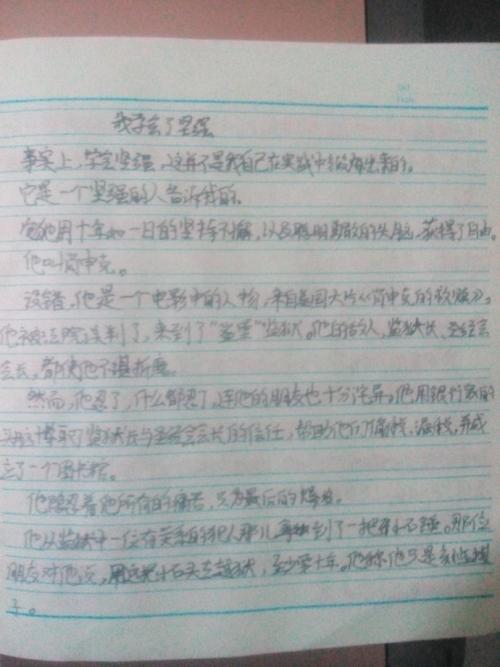 我学会了坚强
事实上,学会坚强,这并不是我自己在实践中得出来的。
它是一个坚强的人告诉我的。
他用十年如一日的坚持不懈,以及聪明勇敢的头脑,获得了自由。
他叫肖申克。
没错,他是一个电影中的人物,来自美国大片《肖申克的救赎》。
他被法院误判了,来到了“鲨堡”监狱。他的狱人,监狱长,
会长,都使他不堪折磨。
然而,他忍了,什么都忍了,连他的朋友也十分诧异。他用银行家的
头脑博取了监狱长与会长的信任,帮助他们偷税、漏税,并成
立了一个图书馆。
他隐忍着他所有的痛苦,只为最后的爆发。
他从监狱中一位有关系的犯人那儿弄到了一把小石锤。那位
朋友对他说,用这把小石头去越狱,至少要十年。他称他只是刻些棋
子。